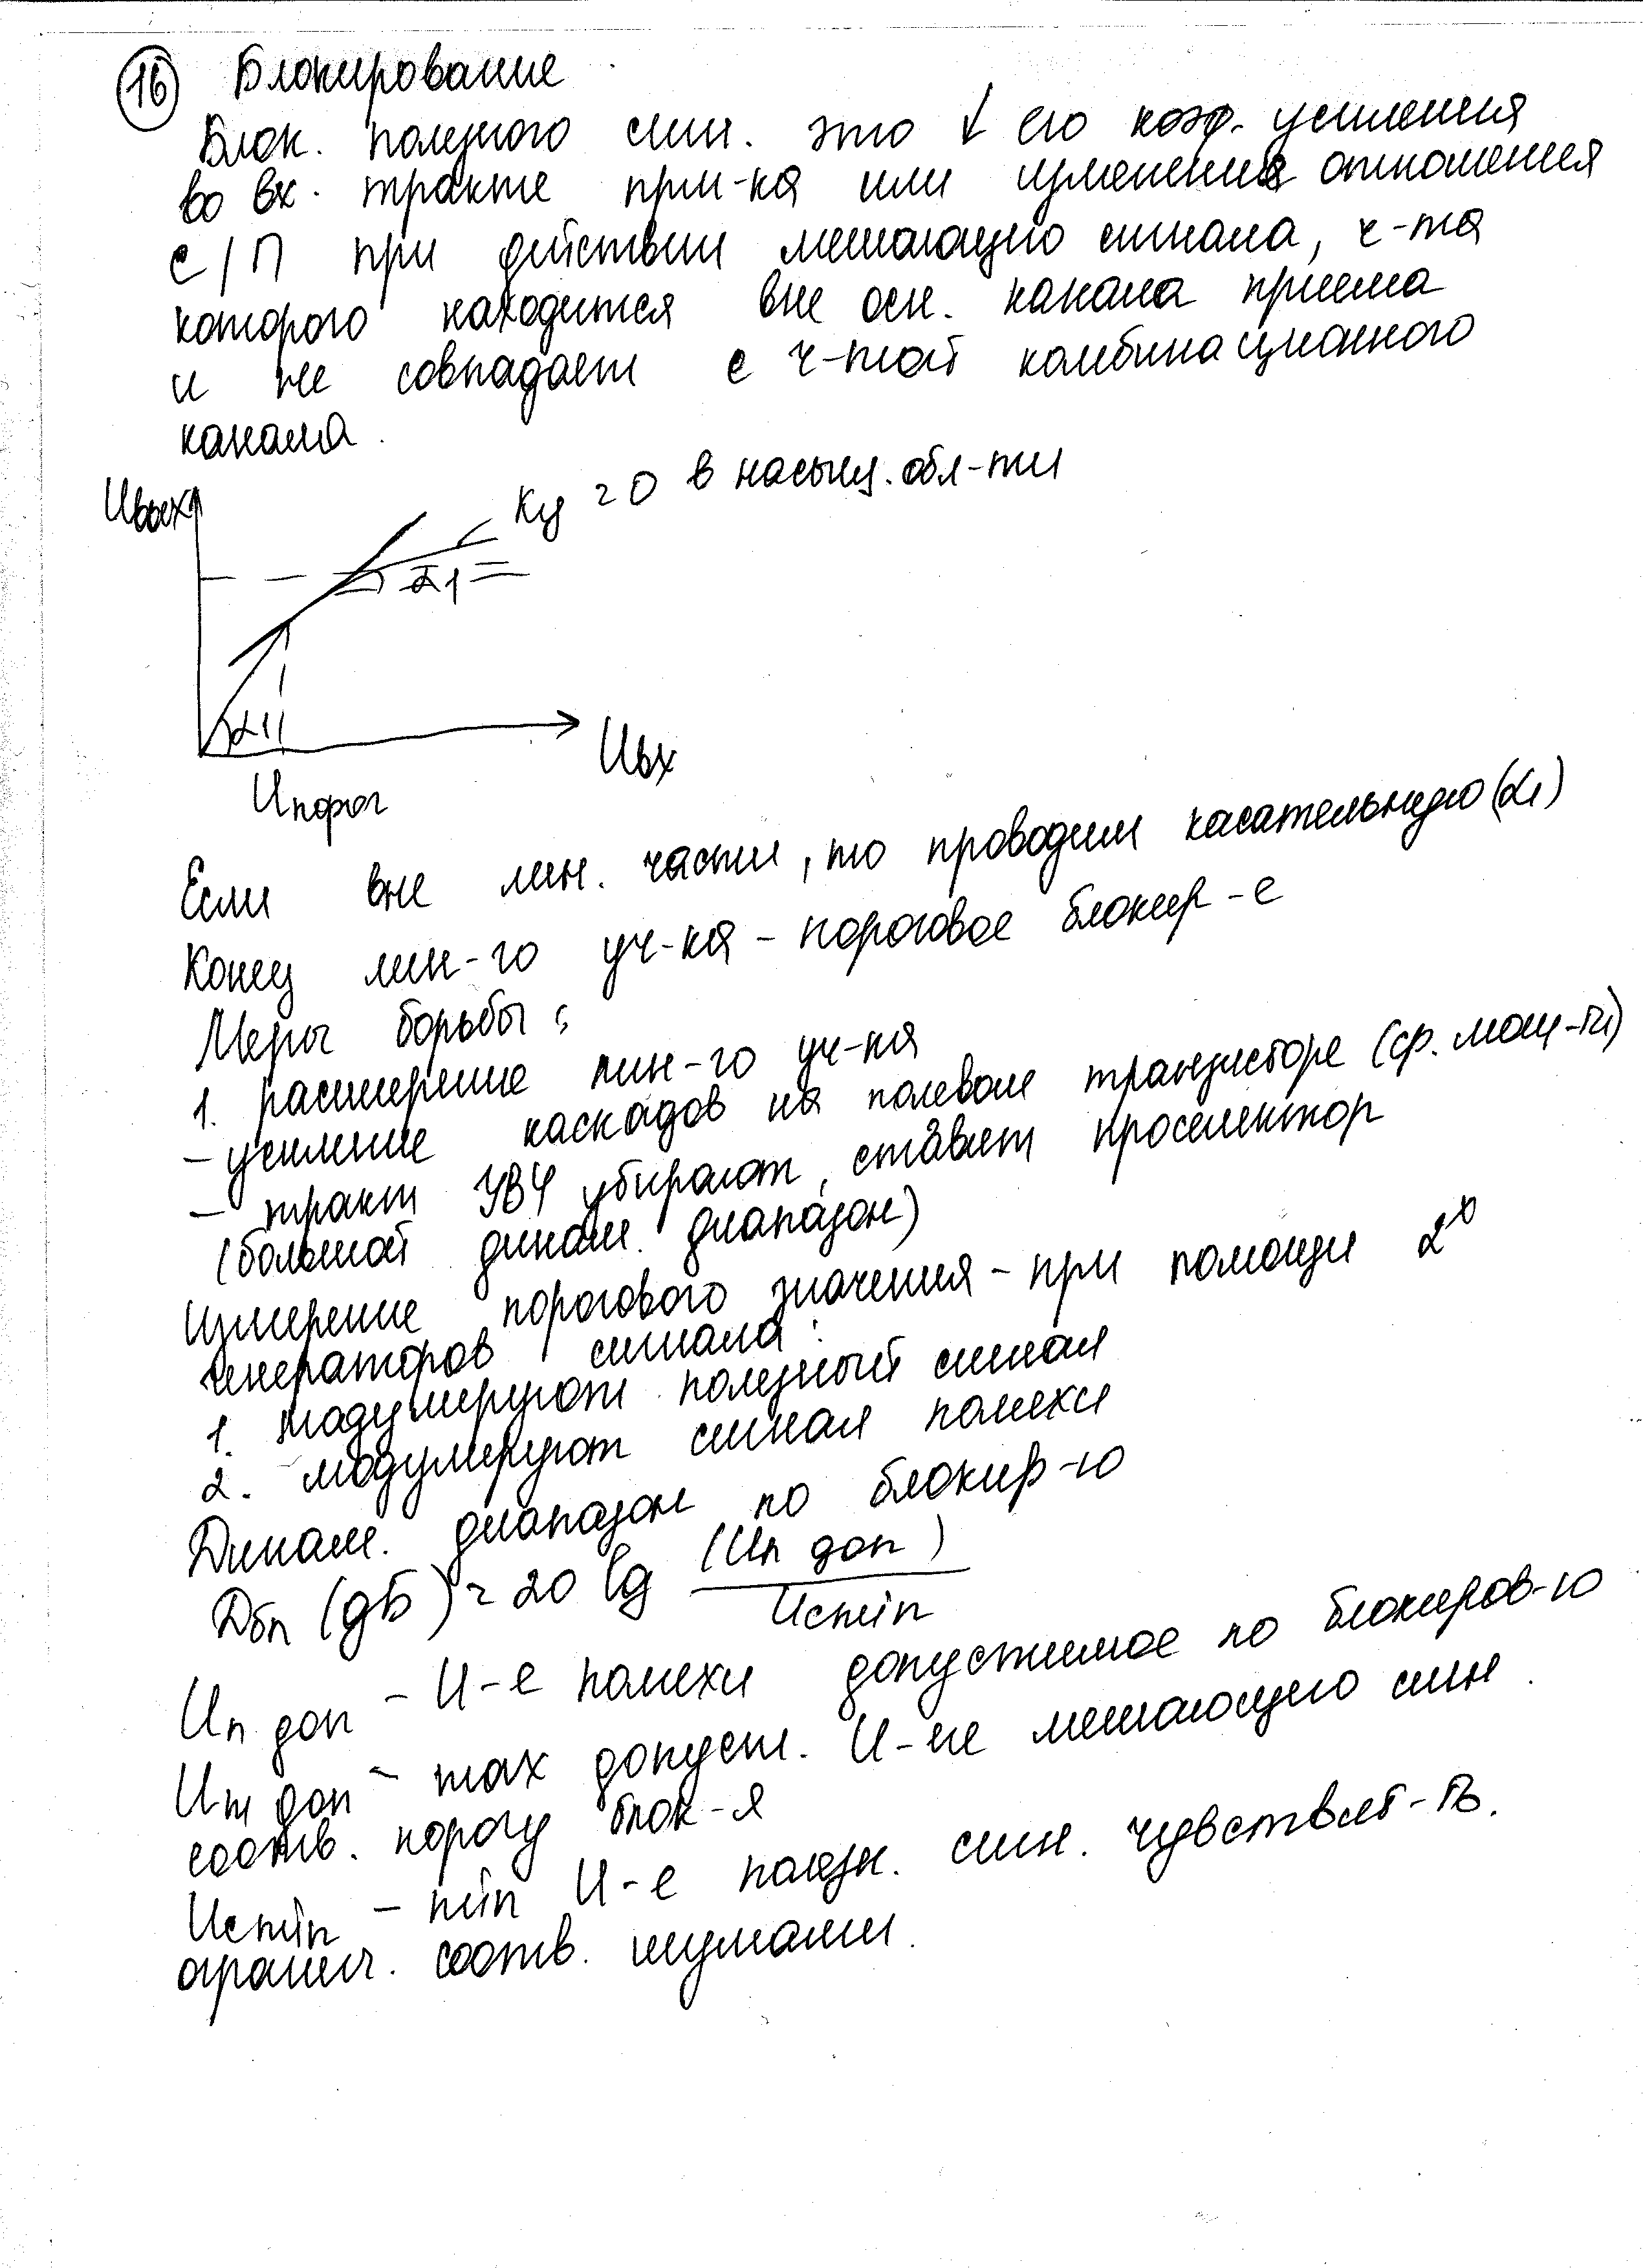 16 Блокирование
Блок. полезного сиг. это ↓ его коэф. усиления
во вх. тракте прм-ка или изменения отношения
с/П при действии мешающего сигнала, ч-та
которого находится вне осн. канала приема
и не совпадает с ч-той комбинационного
канала.
Uвых
Ку = 0 в насыщ. обл-ти
α1
α1
Uвх
Uпорог
Если вне лин. части, то проводим касательную (α1)
Конец лин-го уч-ка - пороговое блокир-е
Меры борьбы:
1. расширение лин-го уч-ка
- усиление каскадов на полевом транзисторе (ср. мощ-ти)
- тракт УВЧ убирают, ставят преселектор
(большой динам. диапазон)
Измерение порогового значения - при помощи 2х
генераторов сигнала:
1. модулируют полезный сигнал
2. модулируют сигнал помехи
Динам. диапазон по блокир-ю
Dбл (дБ) = 20 lg (Uп доп) / Uсmin
Uп доп - U-е помехи допустимое по блокиров-ю
Um доп - max допуст. U-ие мешающего сигн.
соотв. порогу блок-я
Uсmin - min U-е полезн. сигн. чувствит-ть.
огранич. соотв. шумами.